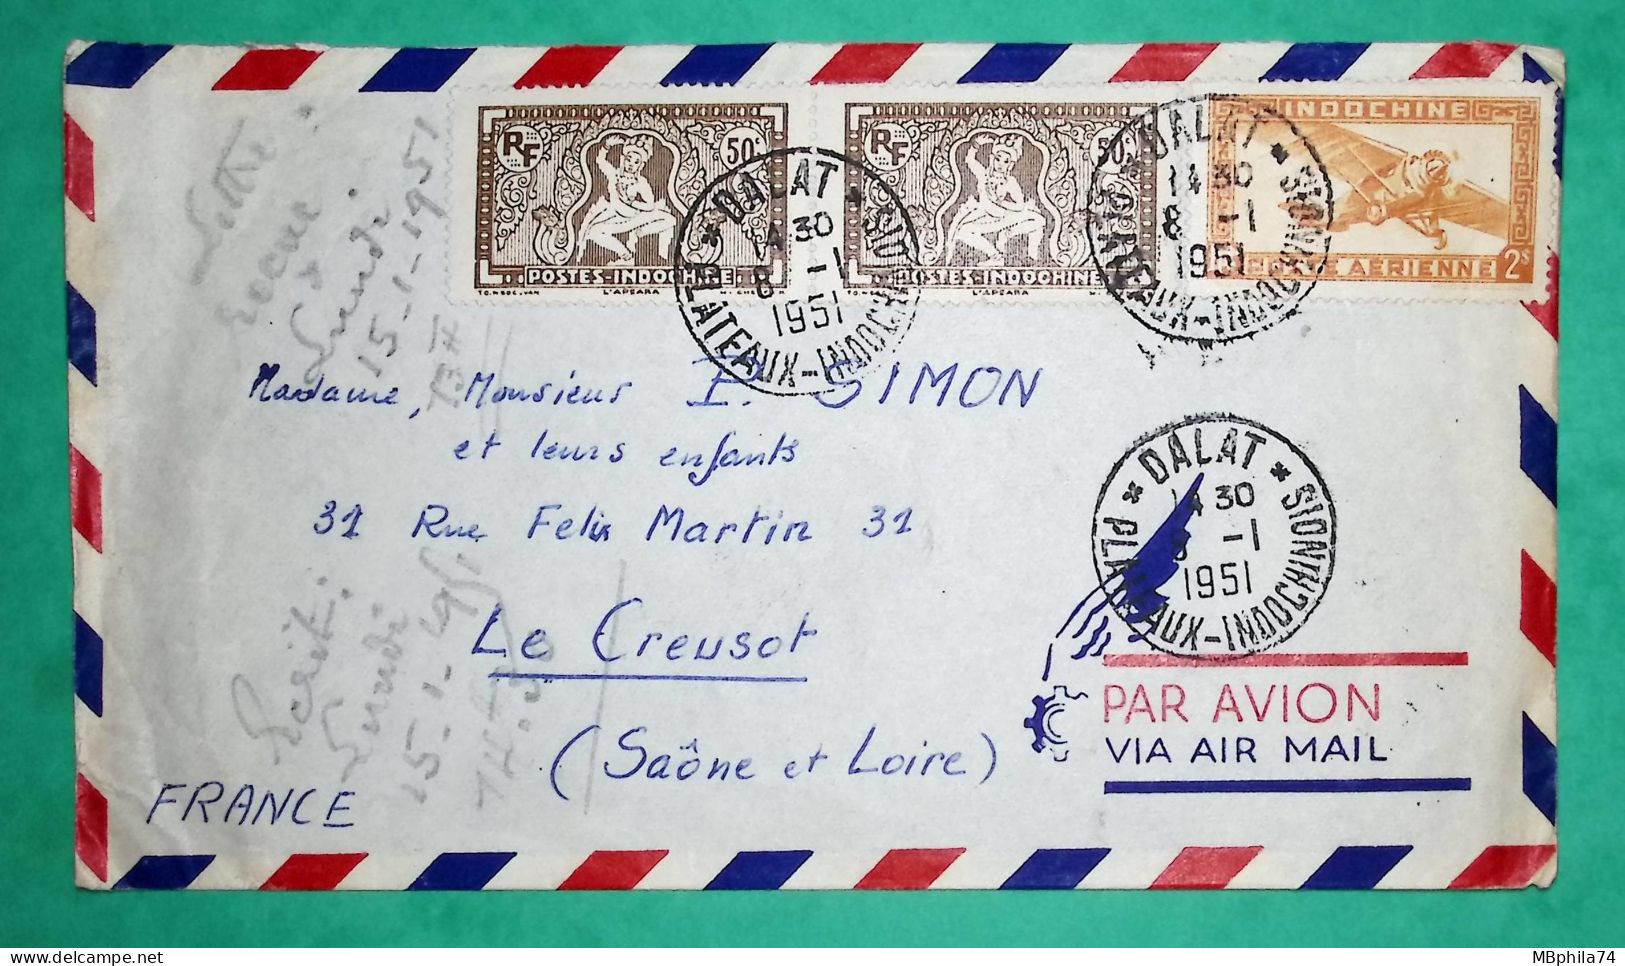 RF 50c
POSTES-INDOCHINE
TONGOC.VAN L'APSARA
RF 50c
POSTES-INDOCHINE
L'APSARA
INDOCHINE
POSTE AÉRIENNE 2$
* DALAT * STIONINDOCHINOIS
14 30
8 -1
1951
PLATEAUX-INDOCHINOIS
* DALAT *
14 30
8 -1
1951
PLATEAUX-INDOCHINOIS
Lettre
Lundi
15-1-1951
Madame, Monsieur P. SIMON
et leurs enfants
31 Rue Felix Martin 31
Le Creusot
(Saône et Loire)
FRANCE
* DALAT *
14 30
8 -1
1951
PLATEAUX-INDOCHINOIS
Lundi
15-1-1951
14.30
PAR AVION
VIA AIR MAIL
MBphila74